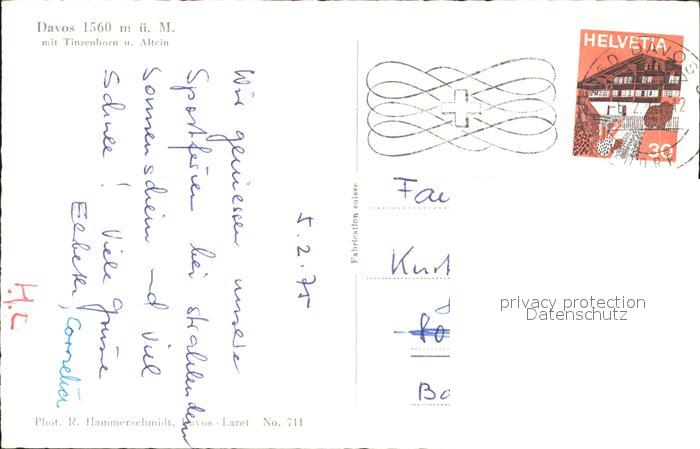 Davos 1560 m ü. M.
mit Tinzenhorn u. Altein
HELVETIA
30
DAVOS
5.2.75
Wir geniessen unsere
Sportferien bei strahlendem
Sonnenschein und viel
Schnee! Viele Grüsse
Elsbeth, Cornelia
H.C
Fabrication suisse
Fa
Kurt
Ba
privacy protection
Datenschutz
Phot. R. Hammerschmidt, Davos-Laret No. 711